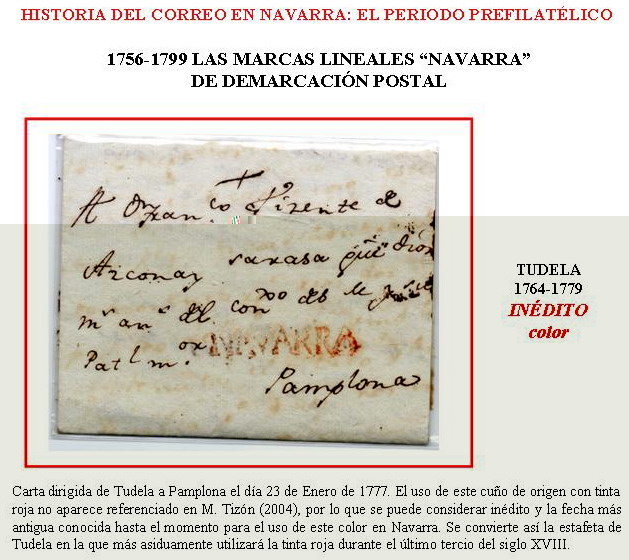 HISTORIA DEL CORREO EN NAVARRA: EL PERIODO PREFILATÉLICO
1756-1799 LAS MARCAS LINEALES “NAVARRA”
DE DEMARCACIÓN POSTAL
A Dn Franco Vizente de
Arconay sarasa
del
NAVARRA
Pamplona
TUDELA
1764-1779
INÉDITO
color
Carta dirigida de Tudela a Pamplona el día 23 de Enero de 1777. El uso de este cuño de origen con tinta
roja no aparece referenciado en M. Tizón (2004), por lo que se puede considerar inédito y la fecha más
antigua conocida hasta el momento para el uso de este color en Navarra. Se convierte así la estafeta de
Tudela en la que más asiduamente utilizará la tinta roja durante el último tercio del siglo XVIII.